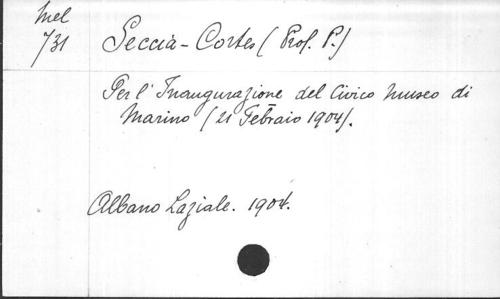 Mel
731
Seccia-Cortes (Prof. P.)
Per l'Inaugurazione del Civico Museo di
Marino (21 Febraio 1904).
Albano Laziale. 1904.